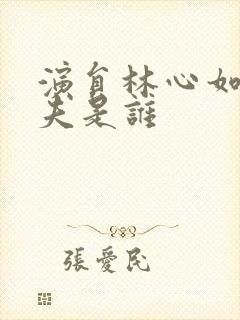 演員林心如
夫是誰
張愛民